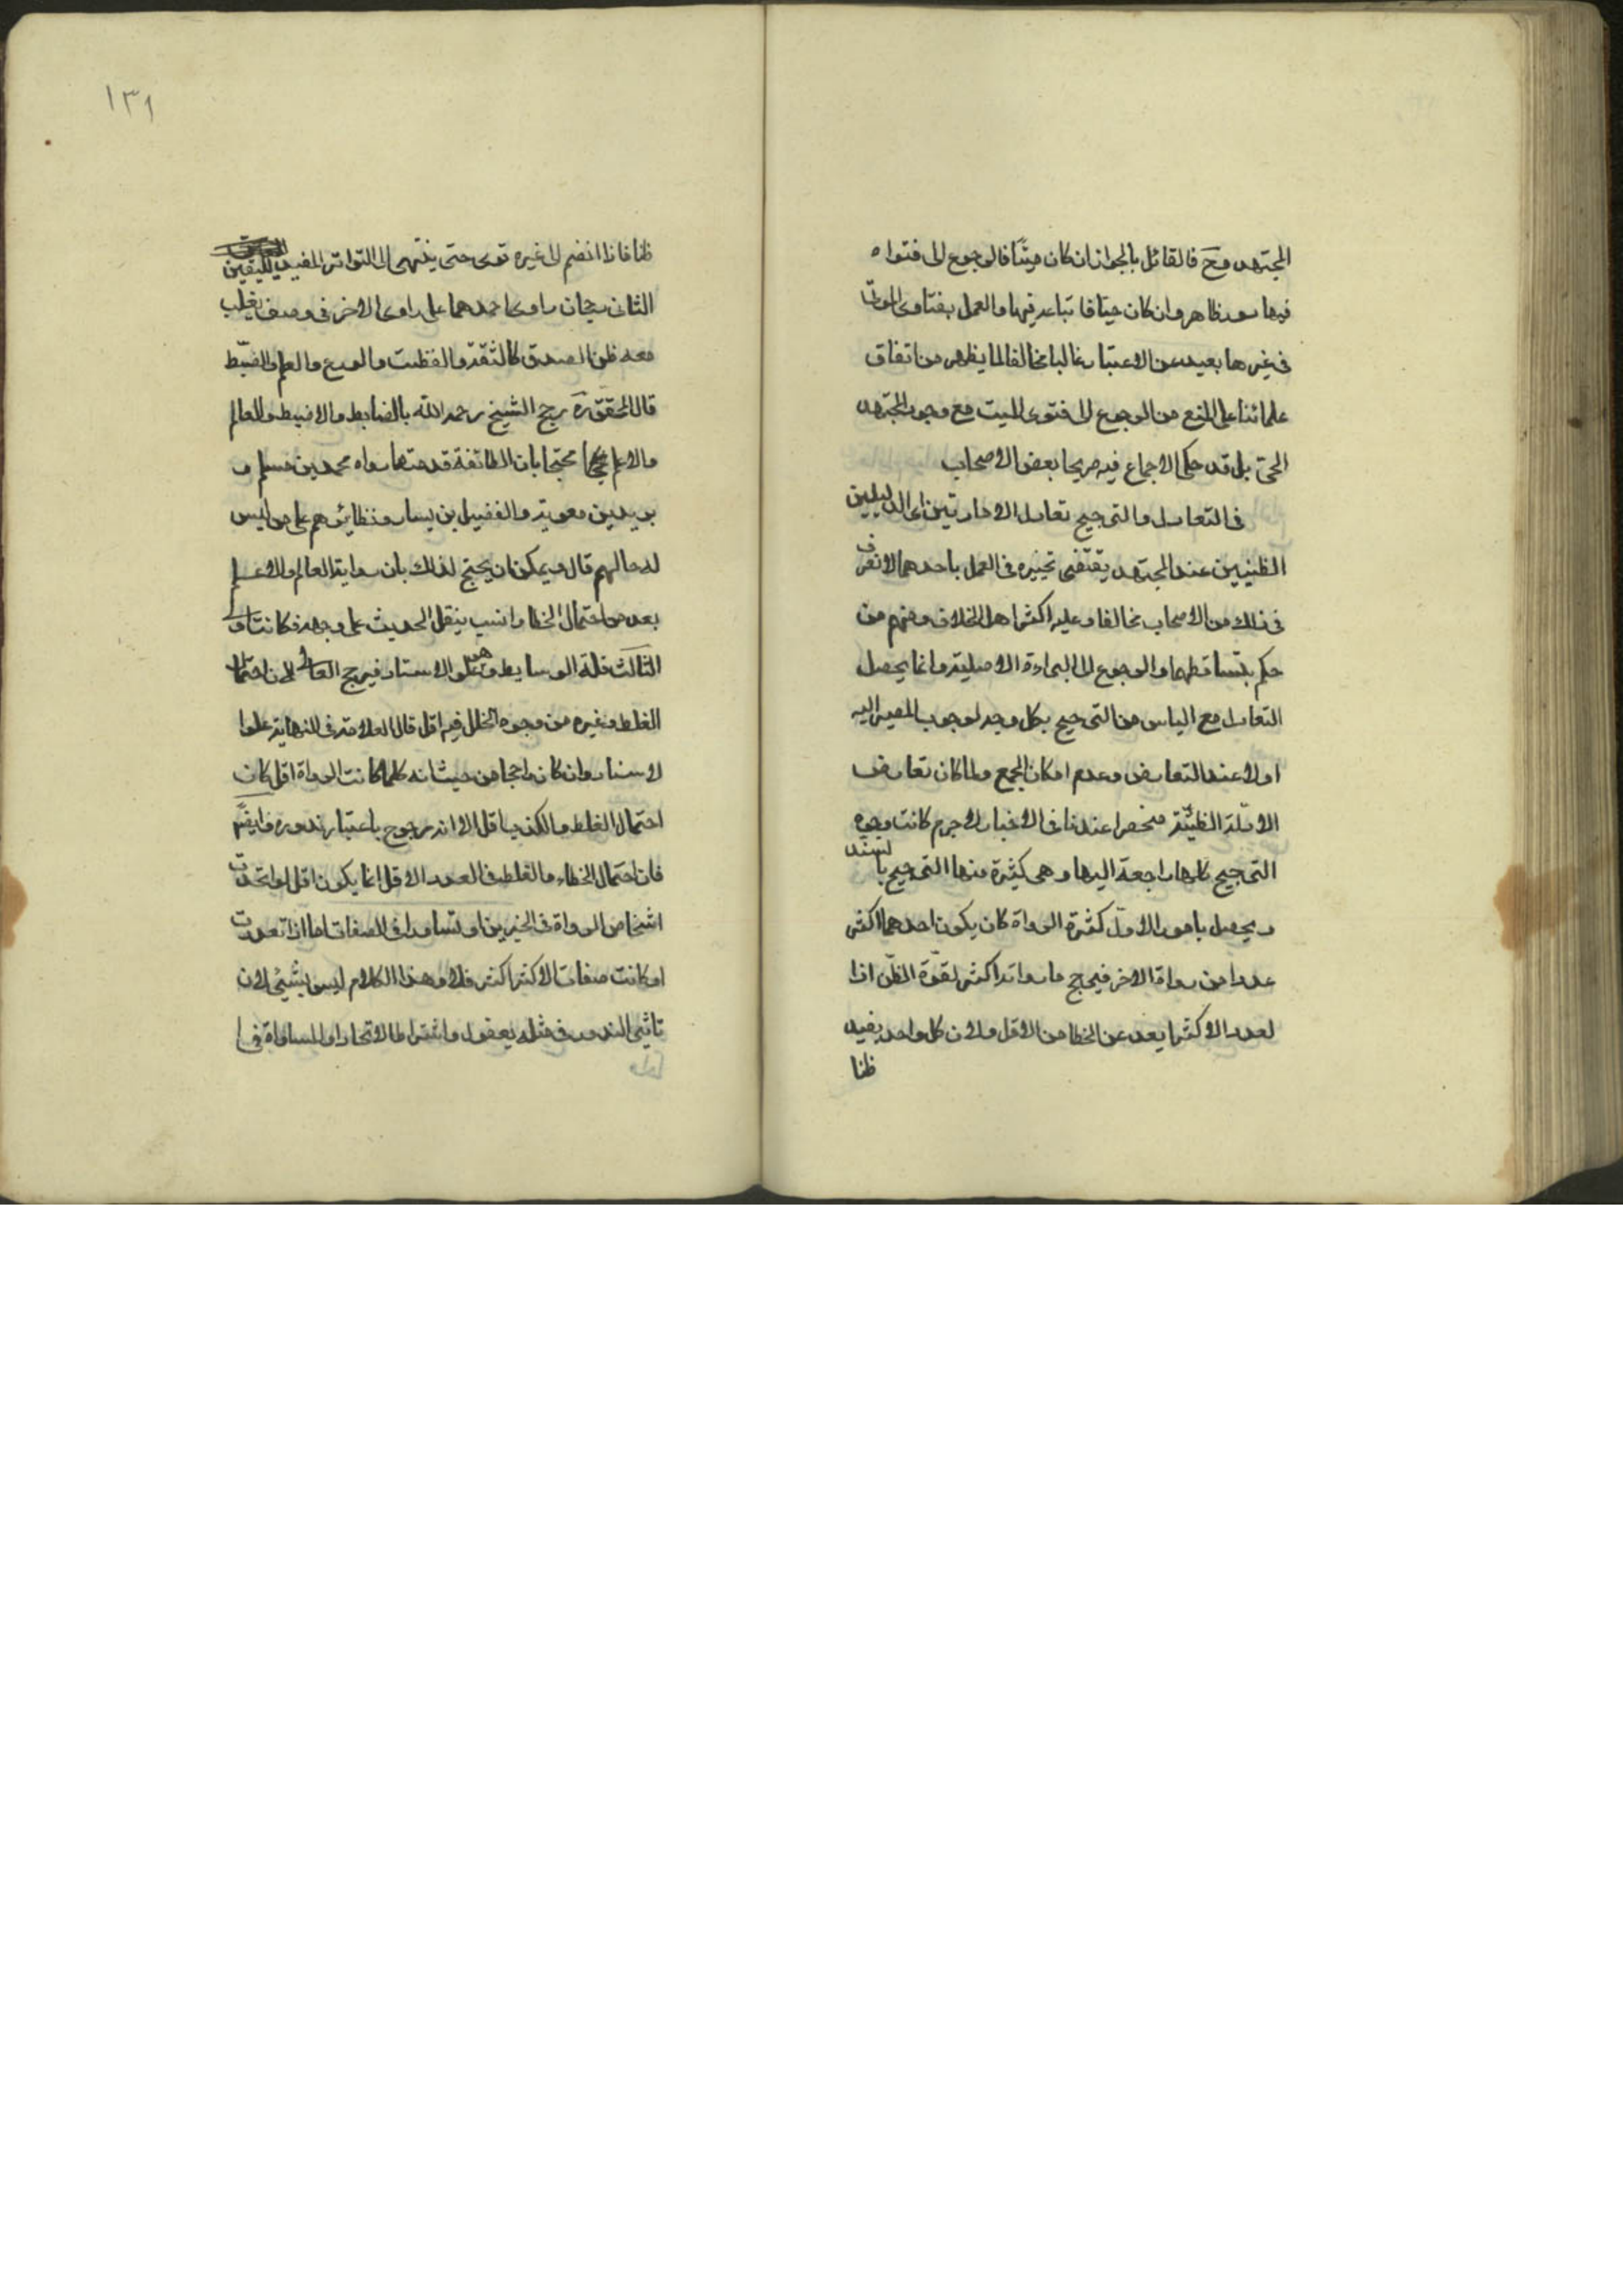 المجتهد وح فالقائل بالجواز ان كان ميتا فالرجوع الى فتواه
فيها دور ظاهر وان كان حيا فاتباعه فيها والعمل بفتاوى الموتى
فى غيرها بعيد عن الاعتبار غالبا مخالف لما يظهر من اتفاق
علمائنا على المنع من الرجوع الى فتوى الميت مع وجود المجتهد
الحى بل قد حكى الاجماع فيه صريحا بعض الاصحاب
فى التعادل والترجيح تعادل الامارتين اى الدليلين
الظنيين عند المجتهد يقتضى تخييره فى العمل باحدهما لا نعرف
فى ذلك من الاصحاب مخالفا وعليه اكثر اهل الخلاف ومنهم من
حكم بتساقطهما والرجوع الى البراءة الاصلية وانما يحصل
التعادل مع الياس من الترجيح بكل وجه لوجوب المصير اليه
اولا عند التعارض وعدم امكان الجمع ولما كان تعارض
الادلة الظنية منحصرا عندنا فى الاخبار لا جرم كانت وجوه
الترجيح كلها راجعة اليها وهى كثيرة منها الترجيح بالسند
ويحصل بامور الاول كثرة الرواة كان يكون احدهما اكثر
عددا من رواة الاخر فيرجح ما رواته اكثر لقوة الظن اذا
لعدد الاكثر ابعد عن الخطا من الاقل ولان كل واحد يفيد
ظنا
١٣١
ظنا فاذا انضم الى غيره قوى حتى ينتهى الى التواتر المفيد لليقين
الثانى رجحان راوى احدهما على راوى الاخر فى وصف يغلب
معه ظن الصدق كالثقة والفطنة والورع والعلم والضبط
قال المحقق ره رجح الشيخ رحمه الله بالضابط والاضبط والعالم
والاعلم محتجا بان الطائفة قدمت ما رواه محمد بن مسلم و
بريد بن معوية والفضيل بن يسار ونظائرهم على من ليس
له حالهم قال ويمكن ان يحتج لذلك بان رواية العالم والاعلم
ابعد من احتمال الخطا وانسب بنقل الحديث على وجهه فكانت اولى
الثالث قلة الوسايط وهو علو الاسناد فيرجح العالى لان احتمال
الغلط وغيره من وجوه الخلل فيه اقل قال العلامة فى النهاية علوا
لاسناد وان كان راجحا من حيث انه كلما كانت الرواة اقل كان
احتمال الغلط والكذب اقل الا انه مرجوح باعتبار ندوره وايضا
فان احتمال الخطاء والغلط فى العدد الاقل انما يكون اقل لو اتحدت
اشخاص الرواة فى الخبرين او تساووا فى الصفات اما اذا تعددت
او كانت صفات الاكثر اكثر فلا وهذا الكلام ليس بشيئ لان
تاثير الندور فى مثله يعقول واشتراط الاتحاد او المساواة فى ا